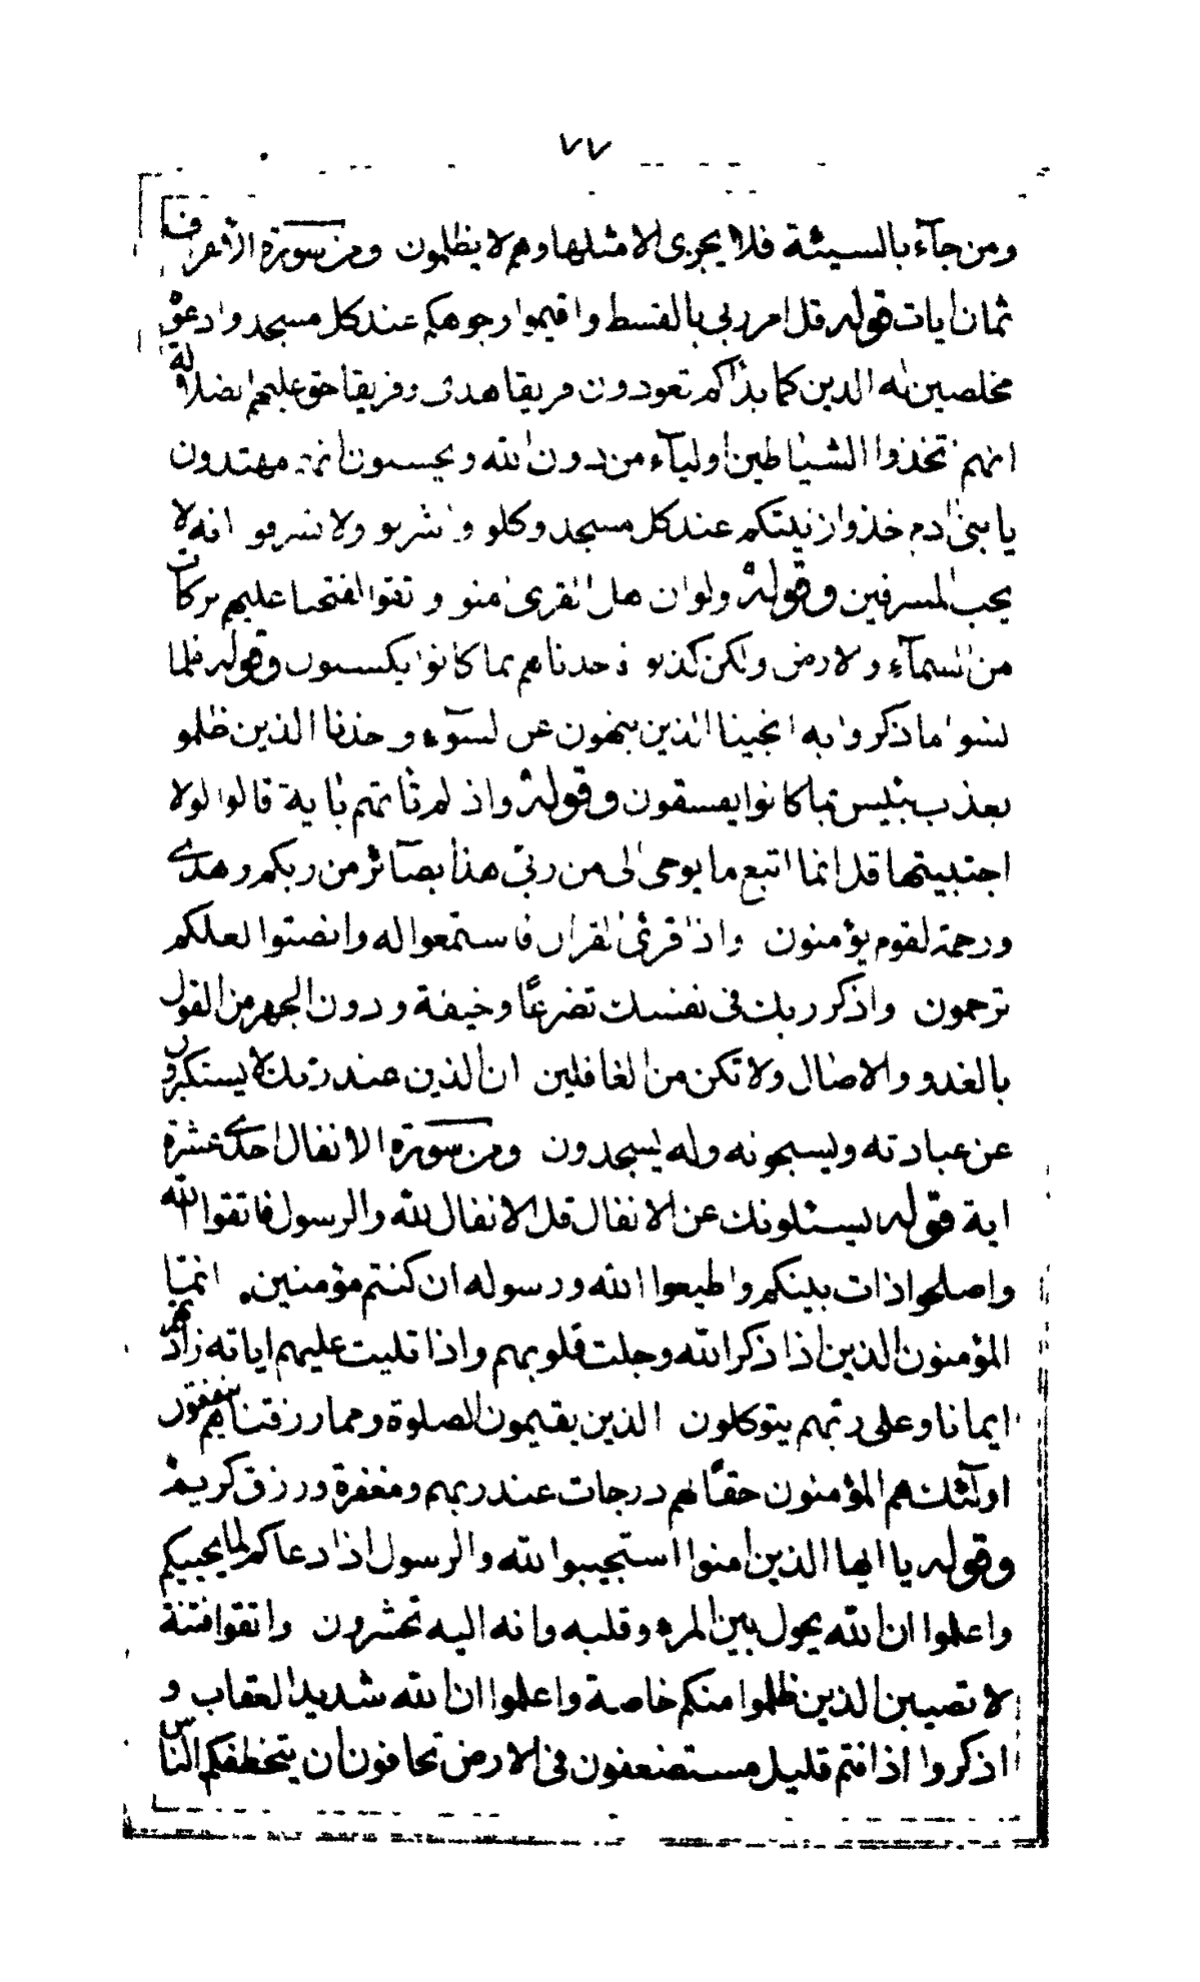 ٧٧
ومن جآء بالسيئة فلا يجزى الا مثلها وهم لا يظلمون ومن سورة الاعراف
ثمان ايات قوله قل امر ربى بالقسط واقيموا وجوهكم عند كل مسجد وادعوه
مخلصين له الدين كما بداكم تعودون فريقا هدى وفريقا حق عليهم الضلالة
انهم اتخذوا الشياطين اوليآء من دون الله ويحسبون انهم مهتدون
يا بنى ادم خذوا زينتكم عند كل مسجد وكلوا واشربوا ولا تسرفوا انه لا
يحب المسرفين وقوله ولو ان اهل القرى امنوا واتقوا لفتحنا عليهم بركات
من السمآء والارض ولكن كذبوا فاخذناهم بما كانوا يكسبون وقوله فلما
نسوا ما ذكروا به انجينا الذين ينهون عن السوٓء واخذنا الذين ظلموا
بعذاب بئيس بما كانوا يفسقون وقوله واذ لم تاتهم باية قالوا لولا
اجتبيتها قل انما اتبع ما يوحى الى من ربى هذا بصآئر من ربكم وهدى
ورحمة لقوم يؤمنون واذا قرئ القران فاستمعوا له وانصتوا لعلكم
ترحمون واذكر ربك فى نفسك تضرعًا وخيفة ودون الجهر من القول
بالغدو والاصال ولا تكن من الغافلين ان الذين عند ربك لا يستكبرون
عن عبادته ويسبحونه وله يسجدون ومن سورة الانفال احدى عشرة
اية قوله يسئلونك عن الانفال قل الانفال لله والرسول فاتقوا الله
واصلحوا ذات بينكم واطيعوا الله ورسوله ان كنتم مؤمنين. انما
المؤمنون الذين اذا ذكر الله وجلت قلوبهم واذا تليت عليهم اياته زادتهم
ايمانا وعلى ربهم يتوكلون الذين يقيمون الصلوة ومما رزقناهم ينفقون
اولٓئك هم المؤمنون حقًا لهم درجات عند ربهم ومغفرة ورزق كريم
وقوله يا ايها الذين امنوا استجيبوا لله والرسول اذا دعاكم لما يحييكم
واعلموا ان الله يحول بين المرء وقلبه وانه اليه تحشرون واتقوا فتنة
لا تصيبن الذين ظلموا منكم خاصة واعلموا ان الله شديد العقاب و
اذكروا اذ انتم قليل مستضعفون فى الارض تخافون ان يتخطفكم الناس